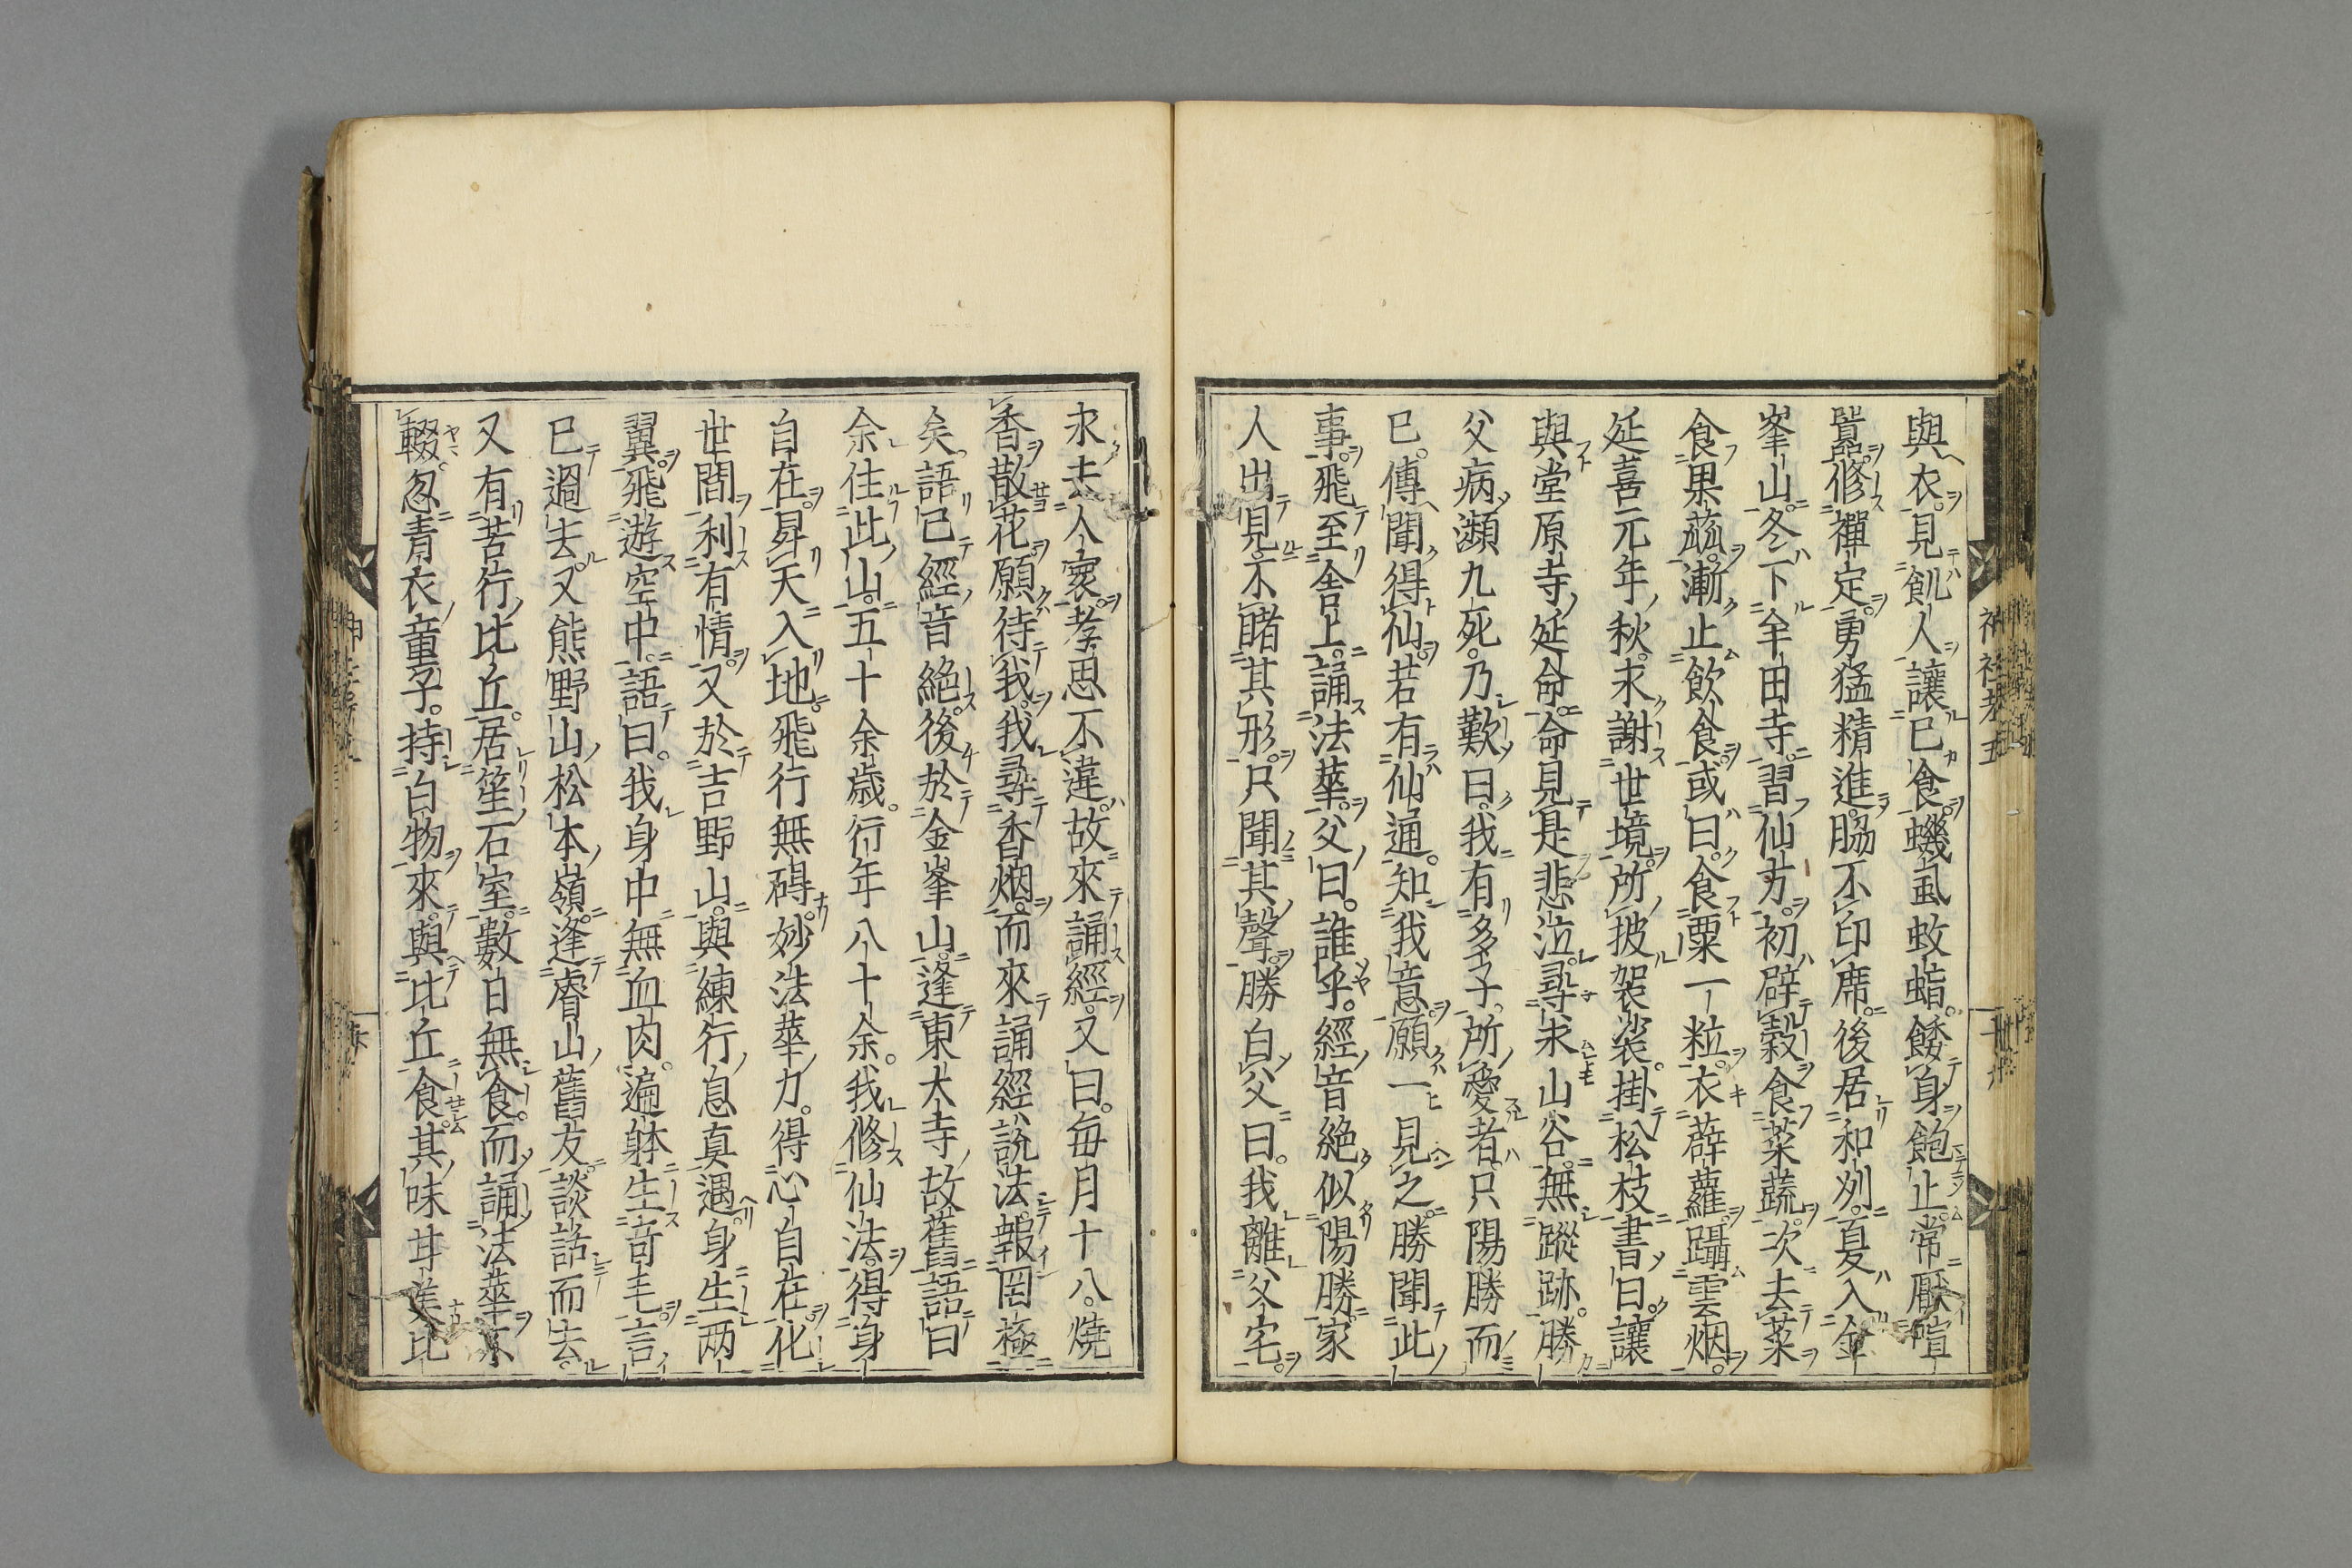 與衣見飢人讓已食蟣虱蚊蝱餧身飽止常厭喧
囂修禪定勇猛精進脇不印席後居和州夏入金
峯山冬下牟田寺習仙方初辟穀食菜蔬次去菜
食果蓏漸止飮食或曰食粟一粒衣薜蘿躡雲烟
延喜元年秋求謝世境所披袈裟掛松枝書曰讓
與堂原寺延命命見是悲泣尋求山谷無蹤跡勝
父病瀕九死乃歎曰我有多子所愛者只陽勝而
已傳聞得仙若有仙通知我意願一見之勝聞此
事飛至舍上誦法華父曰誰乎經音絶似陽勝家
人出見不睹其形只聞其聲勝白父曰我離父宅
永去人寰孝思不違故來誦經又曰毎月十八燒
香散花願待我我尋香烟而來誦經説法報罔極
矣語已經音絶後於金峯山逢東大寺故舊語曰
余住此山五十余歳行年八十余我修仙法得身
自在昇天入地飛行無碍妙法華力得心自在化
世間利有情又於吉野山與練行息真遇身生両
翼飛遊空中語曰我身中無血肉遍躰生奇毛言
已過去又熊野山松本嶺逢睿山舊友談話而去
又有苦行比丘居笙石室數日無食而誦法華不
輟忽青衣童子持白物來與比丘食其味甘美比
神社考五